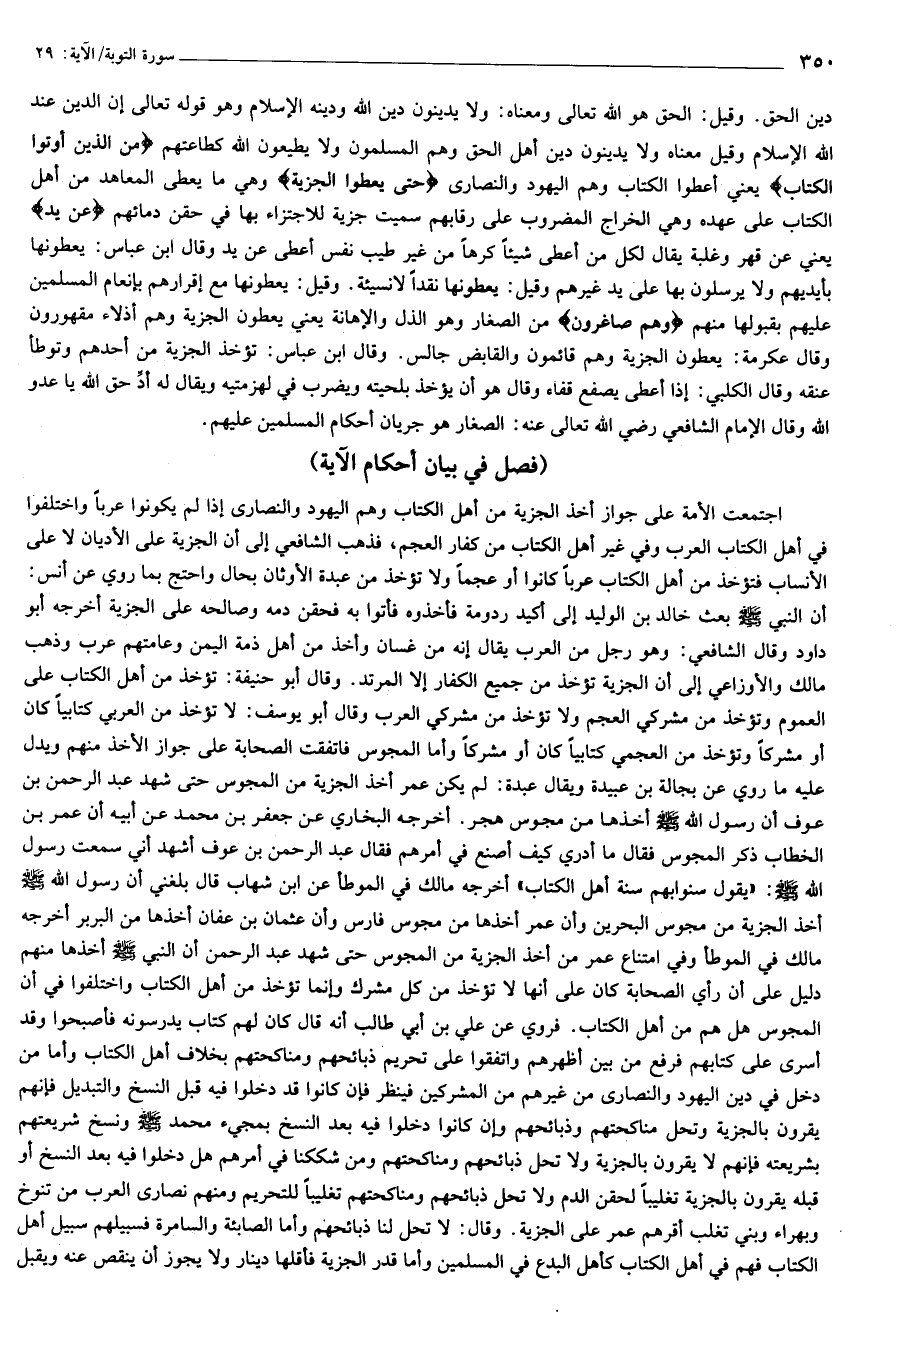 ٣٥٠ سورة التوبة/ الآية: ٢٩
دين الحق. وقيل: الحق هو الله تعالى ومعناه: ولا يدينون دين الله ودينه الإسلام وهو قوله تعالى إن الدين عند
الله الإسلام وقيل معناه ولا يدينون دين أهل الحق وهم المسلمون ولا يطيعون الله كطاعتهم ﴿من الذين أوتوا
الكتاب﴾ يعني أعطوا الكتاب وهم اليهود والنصارى ﴿حتى يعطوا الجزية﴾ وهي ما يعطى المعاهد من أهل
الكتاب على عهده وهي الخراج المضروب على رقابهم سميت جزية للاجتزاء بها في حقن دمائهم ﴿عن يد﴾
يعني عن قهر وغلبة يقال لكل من أعطى شيئاً كرهاً من غير طيب نفس أعطى عن يد وقال ابن عباس: يعطونها
بأيديهم ولا يرسلون بها على يد غيرهم وقيل: يعطونها نقداً لانسيئة. وقيل: يعطونها مع إقرارهم بإنعام المسلمين
عليهم بقبولها منهم ﴿وهم صاغرون﴾ من الصغار وهو الذل والإهانة يعني يعطون الجزية وهم أذلاء مقهورون
وقال عكرمة: يعطون الجزية وهم قائمون والقابض جالس. وقال ابن عباس: تؤخذ الجزية من أحدهم وتوطأ
عنقه وقال الكلبي: إذا أعطى يصفع قفاه وقال هو أن يؤخذ بلحيته ويضرب في لهزمتيه ويقال له أدِّ حق الله يا عدو
الله وقال الإمام الشافعي رضي الله تعالى عنه: الصغار هو جريان أحكام المسلمين عليهم.
(فصل في بيان أحكام الآية)
اجتمعت الأمة على جواز أخذ الجزية من أهل الكتاب وهم اليهود والنصارى إذا لم يكونوا عرباً واختلفوا
في أهل الكتاب العرب وفي غير أهل الكتاب من كفار العجم، فذهب الشافعي إلى أن الجزية على الأديان لا على
الأنساب فتؤخذ من أهل الكتاب عرباً كانوا أو عجماً ولا تؤخذ من عبدة الأوثان بحال واحتج بما روي عن أنس:
أن النبي ﷺ بعث خالد بن الوليد إلى أكيد ردومة فأخذوه فأتوا به فحقن دمه وصالحه على الجزية أخرجه أبو
داود وقال الشافعي: وهو رجل من العرب يقال إنه من غسان وأخذ من أهل ذمة اليمن وعامتهم عرب وذهب
مالك والأوزاعي إلى أن الجزية تؤخذ من جميع الكفار إلا المرتد. وقال أبو حنيفة: تؤخذ من أهل الكتاب على
العموم وتؤخذ من مشركي العجم ولا تؤخذ من مشركي العرب وقال أبو يوسف: لا تؤخذ من العربي كتابياً كان
أو مشركاً وتؤخذ من العجمي كتابياً كان أو مشركاً وأما المجوس فاتفقت الصحابة على جواز الأخذ منهم ويدل
عليه ما روي عن بجالة بن عبيدة ويقال عبدة: لم يكن عمر أخذ الجزية من المجوس حتى شهد عبد الرحمن بن
عوف أن رسول الله ﷺ أخذها من مجوس هجر. أخرجه البخاري عن جعفر بن محمد عن أبيه أن عمر بن
الخطاب ذكر المجوس فقال ما أدري كيف أصنع في أمرهم فقال عبد الرحمن بن عوف أشهد أني سمعت رسول
الله ﷺ: «يقول سنوابهم سنة أهل الكتاب» أخرجه مالك في الموطأ عن ابن شهاب قال بلغني أن رسول الله ﷺ
أخذ الجزية من مجوس البحرين وأن عمر أخذها من مجوس فارس وأن عثمان بن عفان أخذها من البربر أخرجه
مالك في الموطأ وفي امتناع عمر من أخذ الجزية من المجوس حتى شهد عبد الرحمن أن النبي ﷺ أخذها منهم
دليل على أن رأي الصحابة كان على أنها لا تؤخذ من كل مشرك وإنما تؤخذ من أهل الكتاب واختلفوا في أن
المجوس هل هم من أهل الكتاب. فروي عن علي بن أبي طالب أنه قال كان لهم كتاب يدرسونه فأصبحوا وقد
أسرى على كتابهم فرفع من بين أظهرهم واتفقوا على تحريم ذبائحهم ومناكحتهم بخلاف أهل الكتاب وأما من
دخل في دين اليهود والنصارى من غيرهم من المشركين فينظر فإن كانوا قد دخلوا فيه قبل النسخ والتبديل فإنهم
يقرون بالجزية وتحل مناكحتهم وذبائحهم وإن كانوا دخلوا فيه بعد النسخ بمجيء محمد ﷺ ونسخ شريعتهم
بشريعته فإنهم لا يقرون بالجزية ولا تحل ذبائحهم ومناكحتهم ومن شككنا في أمرهم هل دخلوا فيه بعد النسخ أو
قبله يقرون بالجزية تغليباً لحقن الدم ولا تحل ذبائحهم ومناكحتهم تغليباً للتحريم ومنهم نصارى العرب من تنوخ
وبهراء وبني تغلب أقرهم عمر على الجزية. وقال: لا تحل لنا ذبائحهم وأما الصابئة والسامرة فسبيلهم سبيل أهل
الكتاب فهم في أهل الكتاب كأهل البدع في المسلمين وأما قدر الجزية فأقلها دينار ولا يجوز أن ينقص عنه ويقبل